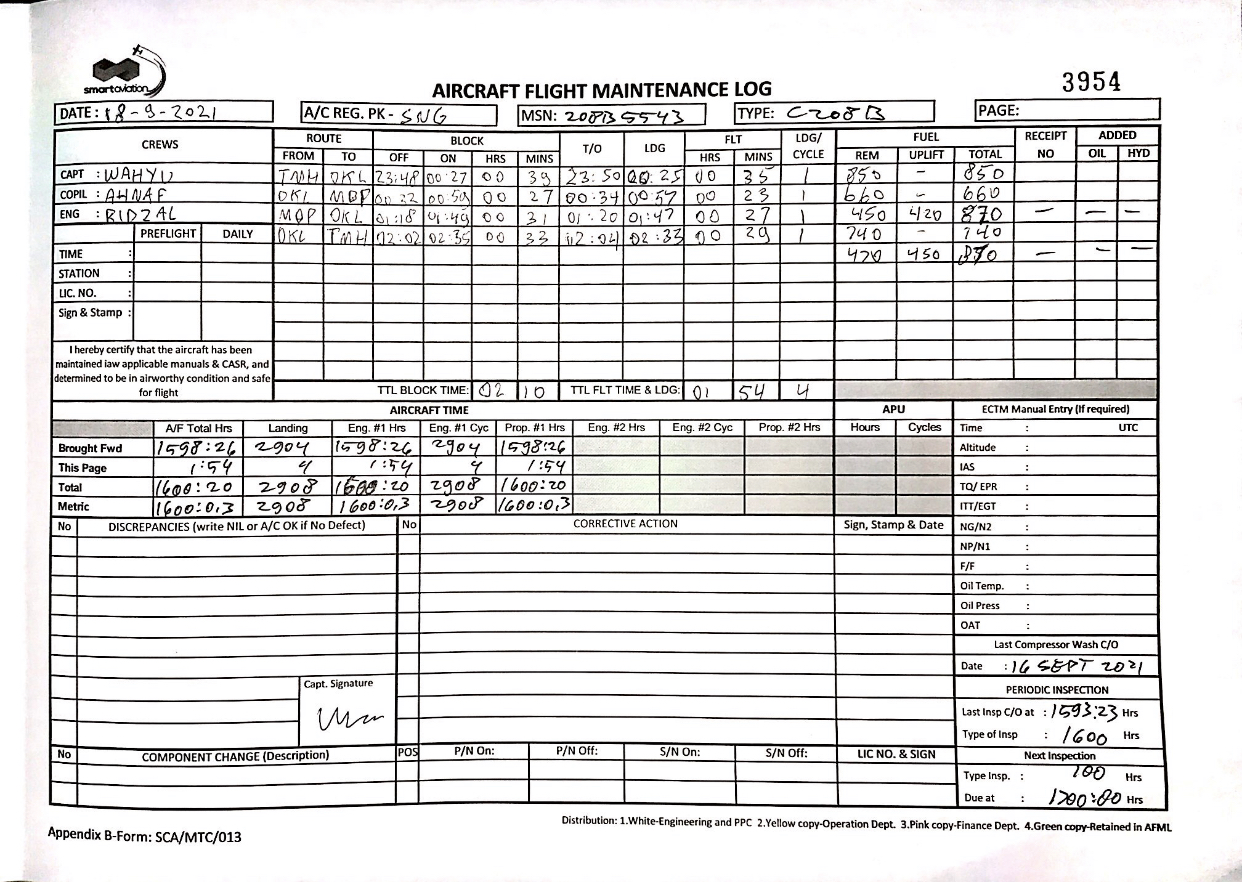 smartaviation
AIRCRAFT FLIGHT MAINTENANCE LOG
3954
DATE: 18-9-2021
A/C REG. PK - SNG
MSN: 208B5543
TYPE: C208B
PAGE:
CREWS ROUTE BLOCK T/O LDG FLT LDG/ CYCLE FUEL RECEIPT NO ADDED
FROM TO OFF ON HRS MINS HRS MINS REM UPLIFT TOTAL OIL HYD
CAPT : WAHYU TMH OKL 23:48 00:27 00 39 23:50 00:25 00 35 1 850 - 850
COPIL : AHNAF OKL MDP 00:32 00:59 00 27 00:34 00:57 00 23 1 660 - 660
ENG : RIDZAL MDP OKL 01:18 01:49 00 31 01:20 01:47 00 27 1 450 420 870 — — —
PREFLIGHT DAILY OKL TMH 02:02 02:35 00 33 02:04 02:33 00 29 1 740 - 740
TIME : 420 450 870 — — —
STATION :
LIC. NO. :
Sign & Stamp :
I hereby certify that the aircraft has been
maintained iaw applicable manuals & CASR, and
determined to be in airworthy condition and safe
for flight
TTL BLOCK TIME: 02 10 TTL FLT TIME & LDG: 01 54 4
AIRCRAFT TIME APU ECTM Manual Entry (If required)
A/F Total Hrs Landing Eng. #1 Hrs Eng. #1 Cyc Prop. #1 Hrs Eng. #2 Hrs Eng. #2 Cyc Prop. #2 Hrs Hours Cycles Time : UTC
Brought Fwd 1598:26 2904 1598:26 2904 1598:26 Altitude :
This Page 1:54 4 1:54 4 1:54 IAS :
Total 1600:20 2908 1600:20 2908 1600:20 TQ/ EPR :
Metric 1600:0,3 2908 1600:0,3 2908 1600:0,3 ITT/EGT :
No DISCREPANCIES (write NIL or A/C OK if No Defect) No CORRECTIVE ACTION Sign, Stamp & Date NG/N2 :
NP/N1 :
F/F :
Oil Temp. :
Oil Press :
OAT :
Last Compressor Wash C/O
Date : 16 SEPT 2021
Capt. Signature
PERIODIC INSPECTION
Last Insp C/O at : 1593:23 Hrs
Type of Insp : 1600 Hrs
No COMPONENT CHANGE (Description) POS P/N On: P/N Off: S/N On: S/N Off: LIC NO. & SIGN Next Inspection
Type Insp. : 100 Hrs
Due at : 1700:00 Hrs
Distribution: 1.White-Engineering and PPC 2.Yellow copy-Operation Dept. 3.Pink copy-Finance Dept. 4.Green copy-Retained in AFML
Appendix B-Form: SCA/MTC/013